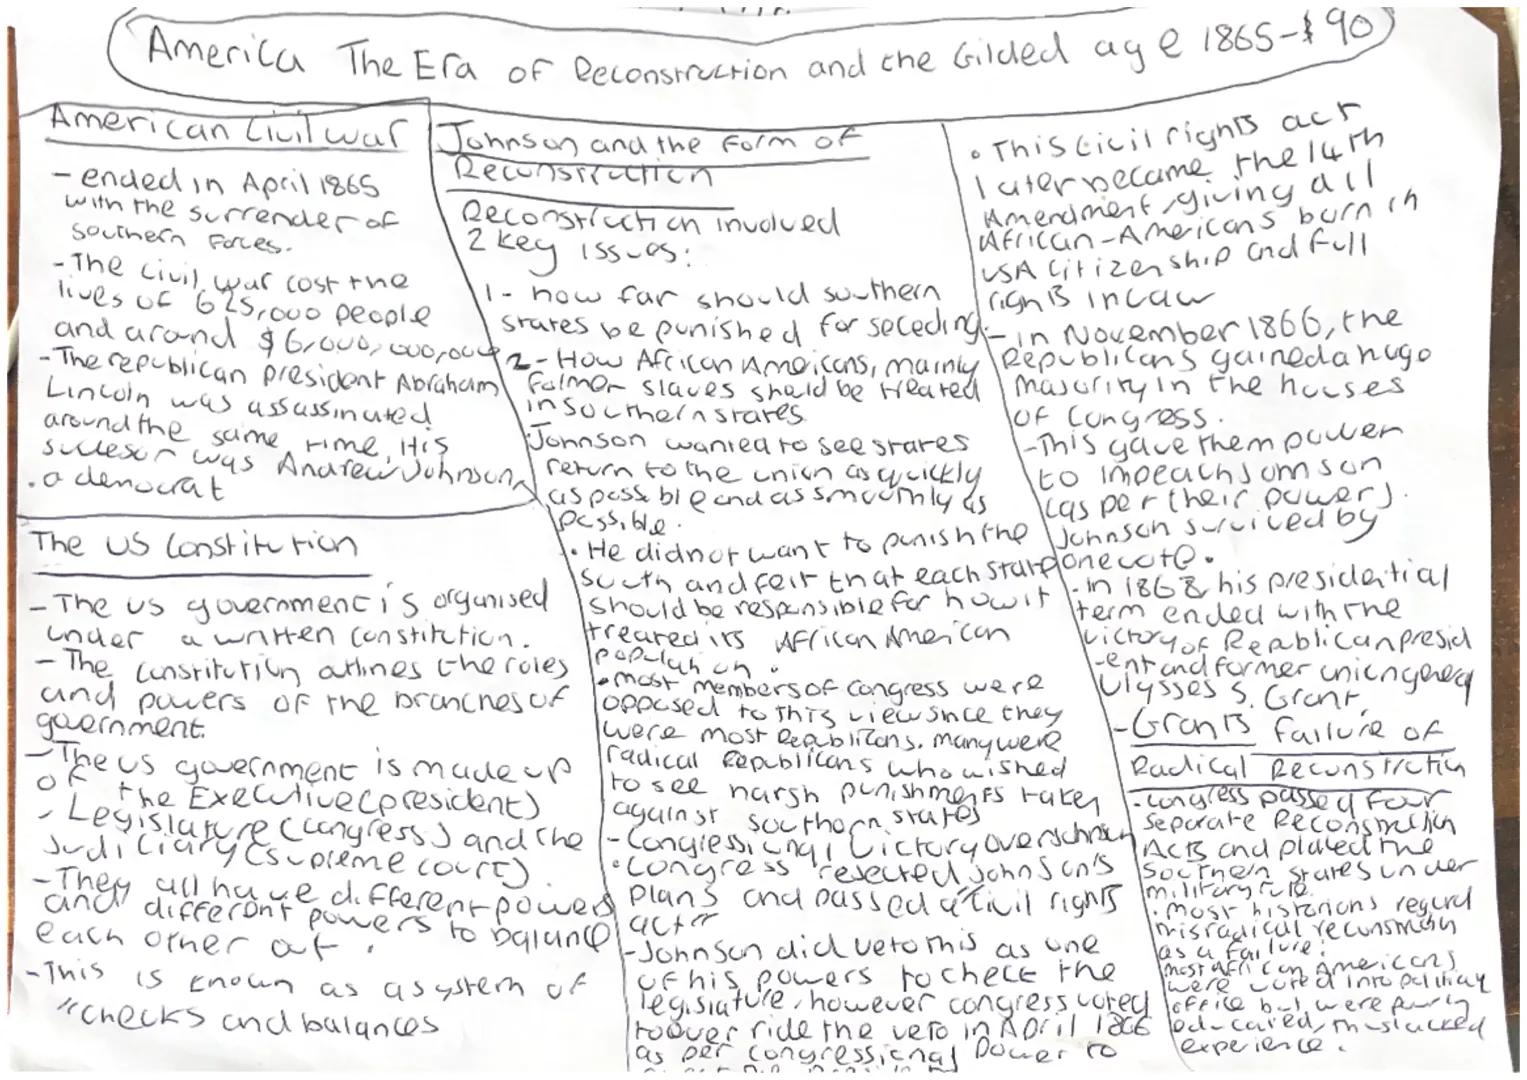 America The Era of Reconstruction and the Gilded age 1865-$90
American Civil war
- ended in April 1865
with the surrender of
southern forces.
- The civil war cost the
lives of 625,000 people
and around $6,000,000,000
- The republican president Abraham
Lincoln was assassinated
around the same time, His
sucessor was Andrew Johnson,
a democrat
The US Constitution
- The US government is organised
under a written constitution.
- The constitution outlines the roles
and powers of the branches of
government.
- The US government is made up
of the Executive (president)
, Legislature (congress) and the
Judiciary (supreme court).
- They all have different powers
and different powers to balance
each other out.
- This is known as a system of
"checks and balances
Johnson and the Form of
Reconstruction
Reconstruction involved
2 key issues:
1- how far should southern
states be punished for seceding.
2- How African Americans, mainly
former slaves should be treated
in southern states
Johnson wanted to see states
return to the union as quickly
as possible and as smoothly as
possible.
• He did not want to punish the
south and felt that each state
should be responsible for how it
treated its African American
population.
• most members of congress were
opposed to this view since they
were most Republicans. many were
radical Republicans who wished
to see harsh punishments taken
against southern states
- Congressional Victory over Johnson
• Congress rejected Johnson's
plans and passed a "civil rights
act"
- Johnson did veto this as one
of his powers to check the
legislature, however congress voted
to over ride the veto in April 1866
as per congressional power to
• This Civil rights act
later became the 14th
Amendment, giving all
African-Americans born in
USA Citizenship and full
rights in law
- in November 1866, the
Republicans gained a huge
majority in the houses
of Congress.
- This gave them power
to impeach Johnson
(as per their power).
Johnson survived by
one vote.
• In 1868 his presidential
term ended with the
victory of Republican presid
-ent and former union general
Ulysses S. Grant.
- Grants failure of
Radical Reconstruction
• congress passed four
separate Reconstruction
Acts and placed the
Southern states under
military rule.
• most historians regard
this radical reconstruction
as a failure:
most African Americans
were voted into political
office but were poorly
educated, thus lacked
experience.